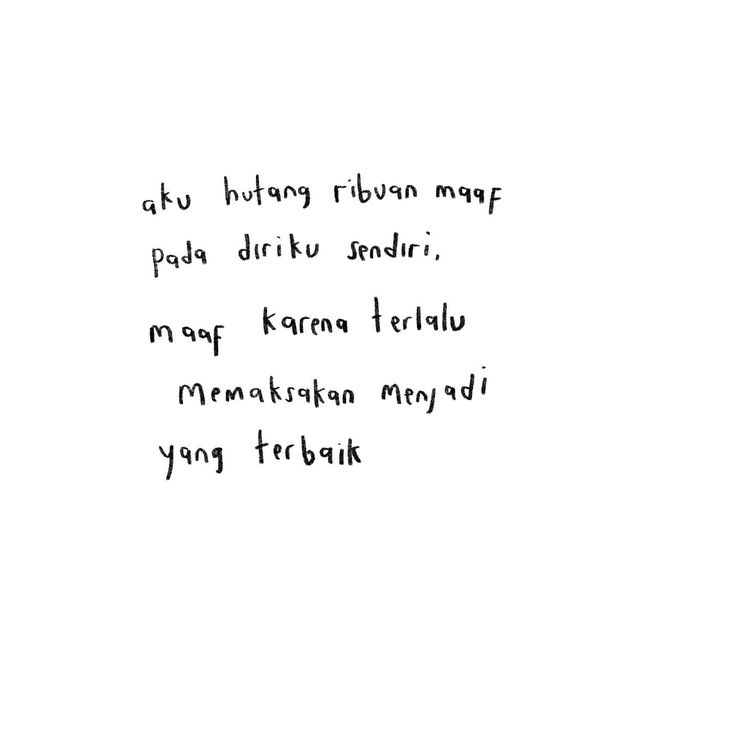 aku hutang ribuan maaf
pada diriku sendiri,
maaf karena terlalu
memaksakan menjadi
yang terbaik